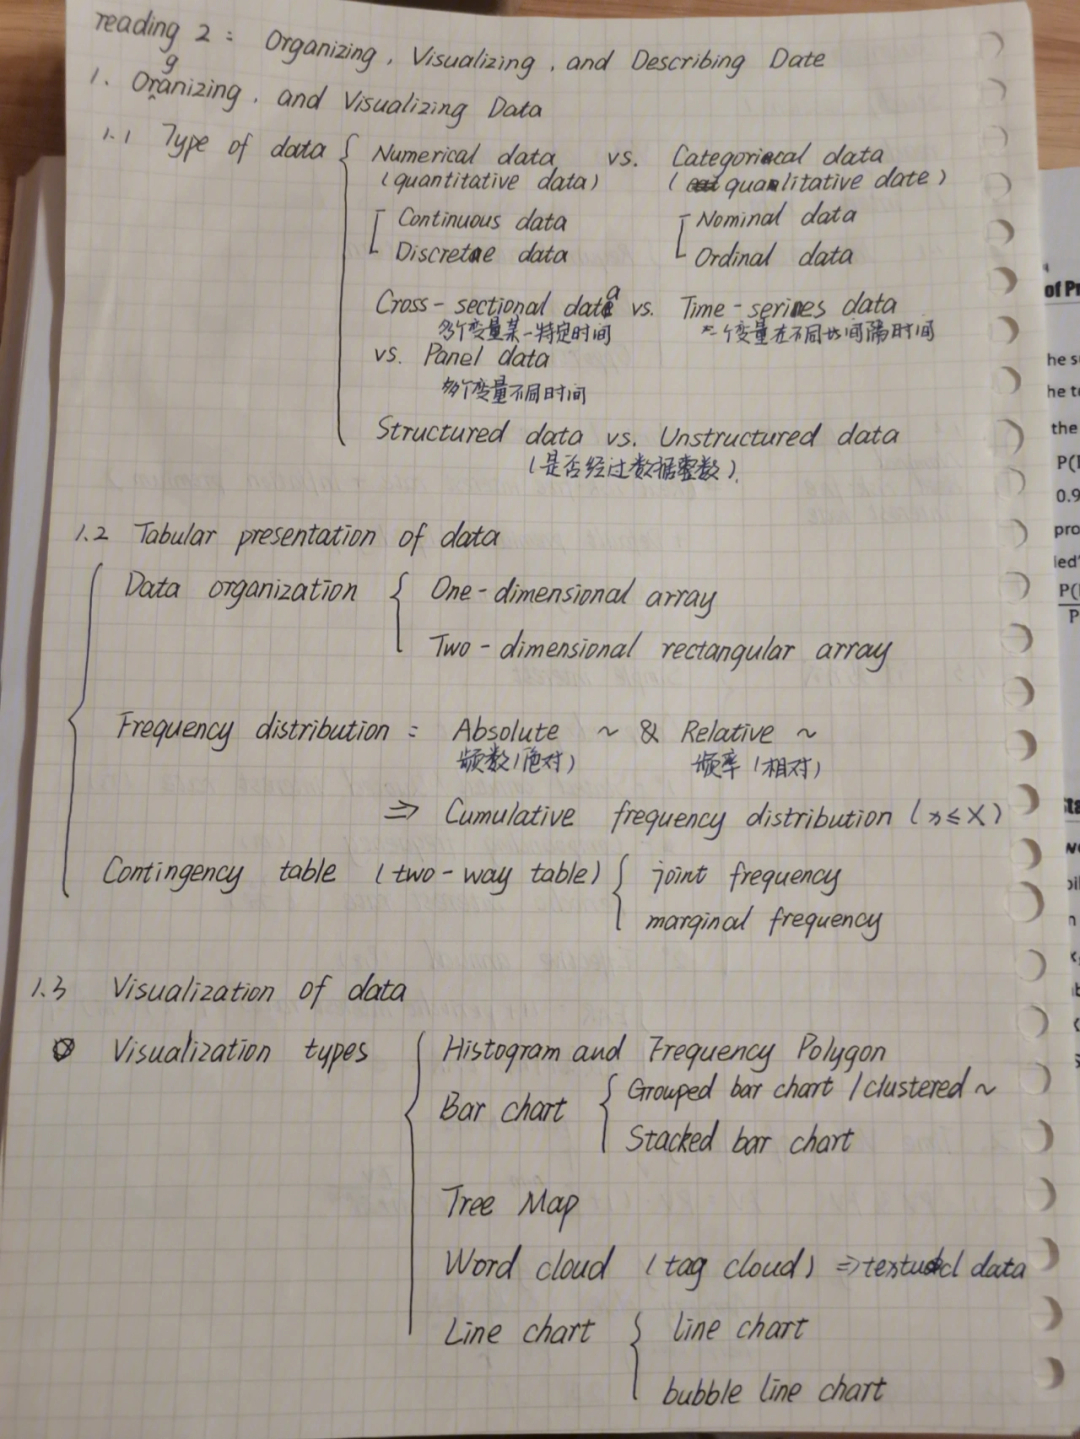 reading 2: Organizing, Visualizing, and Describing Date
1. Organizing, and Visualizing Data
1.1 Type of data
Numerical data vs. Categorical data
(quantitative data) (qualitative date)
Continuous data Nominal data
Discrete data Ordinal data
Cross-sectional data vs. Time-series data
多个变量某一特定时间 一个变量在不同 间隔时间
vs. Panel data
多个变量不同时间
Structured data vs. Unstructured data
(是否经过数据整数)
1.2 Tabular presentation of data
Data organization One-dimensional array
Two-dimensional rectangular array
Frequency distribution: Absolute ~ & Relative ~
频数(绝对) 频率(相对)
⇒ Cumulative frequency distribution (x≤X)
Contingency table (two-way table) joint frequency
marginal frequency
1.3 Visualization of data
Visualization types Histogram and Frequency Polygon
Bar chart Grouped bar chart / clustered ~
Stacked bar chart
Tree Map
Word cloud (tag cloud) ⇒ data
Line chart line chart
bubble line chart
of Pr
the
P(
0.9
pro
led"
P(
P